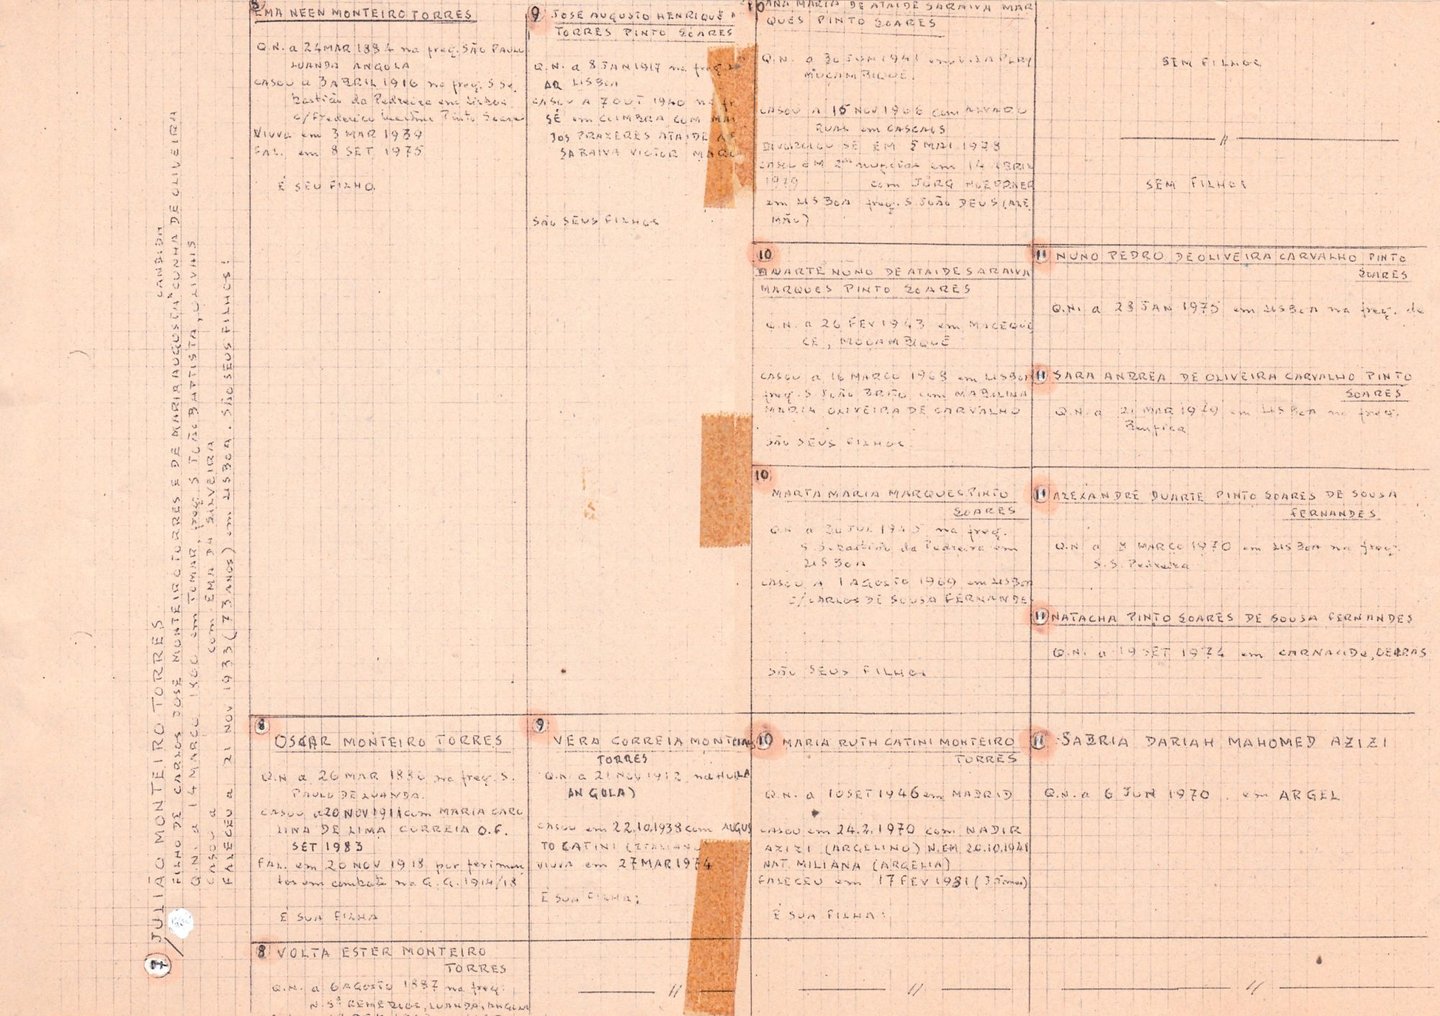 8
EMA NEEN MONTEIRO TORRES
Q.N. a 24 MAR 1884 na freg. SÃO PAULO
LUANDA ANGOLA
CASOU a 3 ABRIL 1916 na freg. S Se
bastião da Pedreira em Lisboa
c/Frederico Martins Pinto Soares
VIUVA em 3 MAR 1939
FAL. em 8 SET 1975
É SEU FILHO
9
JOSÉ AUGUSTO HENRIQUE
TORRES PINTO SOARES
Q.N. a 8 JAN 1917 na freg.
LISBOA
CASOU A 7 OUT 1940 na fr
SÉ em COIMBRA COM MA
DOS PRAZERES ATAIDE
SARAIVA VICTOR MARQ
SÃO SEUS FILHOS
10
ANA MARIA DE ATAIDE SARAIVA MAR
QUES PINTO SOARES
Q.N. a 30 JUN 1941 em
MOÇAMBIQUE.
CASOU A 15 NOV 1966 com ALVARO
RUAS em CASCAIS
DIVORCIOU SE EM 5 MAI 1978
CASOU EM 2as nupcias em 14 ABRIL
1979 com JÖRG
em LISBOA freg. S JOÃO DEUS (ALE
MÃO)
SEM FILHOS
SEM FILHOS
10
DUARTE NUNO DE ATAIDE SARAIVA
MARQUES PINTO SOARES
Q.N. a 26 FEV 1943 em MACEQUE
CE, MOÇAMBIQUE
CASOU a 16 MARÇO 1968 em LISBOA
freg. S JOÃO BRITO com MADALENA
MARIA OLIVEIRA DE CARVALHO
SÃO SEUS FILHOS
11 NUNO PEDRO DE OLIVEIRA CARVALHO PINTO
SOARES
Q.N. a 23 JAN 1975 em LISBOA na freg. de
11 SARA ANDREA DE OLIVEIRA CARVALHO PINTO
SOARES
Q.N. a 21 MAR 1979 em LISBOA na freg.
Benfica
10
MARTA MARIA MARQUES PINTO
SOARES
Q.N a 30 JUL 1945 na freg.
S Sebastião da Pedreira em
LISBOA
CASOU A 1 AGOSTO 1969 em LISBOA
C/CARLOS DE SOUSA FERNANDES
SÃO SEUS FILHOS
11 ALEXANDRE DUARTE PINTO SOARES DE SOUSA
FERNANDES
Q.N a 3 MARÇO 1970 em LISBOA na freg.
S.S. Pedreira
11 NATACHA PINTO SOARES DE SOUSA FERNANDES
Q.N. a 19 SET 1974 em CARNAXIDE, OEIRAS
8
OSCAR MONTEIRO TORRES
Q.N a 26 MAR 1886 na freg. S.
PAULO DE LUANDA.
CASOU a 20 NOV 1911 com MARIA CARO
LINA DE LIMA CORREIA O.F.
SET 1983
FAL. em 20 NOV 1918. por ferimen
tos em combate na G.G. 1914/18
É SUA FILHA
9
VERA CORREIA MONTEIRO
TORRES
Q.N. a 21 NOV 1912 na HUILA
ANGOLA)
CASOU em 22.10.1938 com AUGUS
TO CATINI (ITALIANO
VIUVA em 27 MAR 1974
É SUA FILHA;
10 MARIA RUTH CATINI MONTEIRO
TORRES
Q.N. a 10 SET 1946 em MADRID
CASOU em 24.2.1970 com NADIR
AZIZI (ARGELINO) N. EM 20.10.1941
NAT MILIANA (ARGELIA)
FALECEU em 17 FEV 1981 (35 anos)
É SUA FILHA:
11 SABRIA DARIAH MAHOMED AZIZI
Q.N. a 6 JUN 1970 em ARGEL
8 VOLTA ESTER MONTEIRO
TORRES
Q.N. a 6 AGOSTO 1887 na freg.
N. Sª REMEDIOS, LUANDA, ANGOLA
7 JULIÃO MONTEIRO TORRES
FILHO DE CARLOS JOSÉ MONTEIRO TORRES E DE MARIA AUGUSTA CUNHA DE OLIVEIRA
CANDIDA
Q.N. a 14 MARÇO 1860 em TOMAR, freg. S JOÃO BAPTISTA, OLIVAIS
CASOU a com EMA DA SILVEIRA
FALECEU a 21 NOV 1933 (73 ANOS) em LISBOA. SÃO SEUS FILHOS: